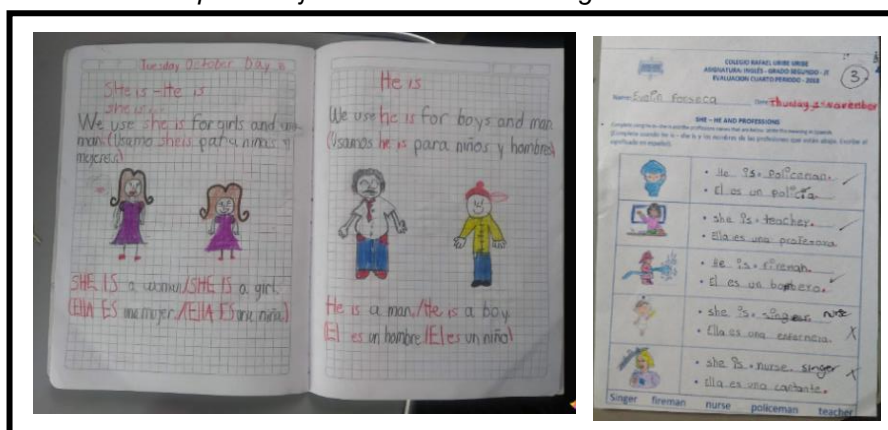 Tuesday October Day
SHe is - He is
she is
We use she is for girls and
man. (Usamo sheis para niñas y
mujeres.)
SHE IS a woman/SHE IS a girl.
(EllA ES una mujer./EllA ES una niña.)
He is
We use he is for boys and man
(Usamos he is para niños y hombres)
He is a man./He is a boy
(El es un hombre/El es un niño)
COLEGIO RAFAEL URIBE URIBE
ASIGNATURA: INGLÉS - GRADO SEGUNDO - JT
EVALUACION CUARTO PERIODO - 2018
3
Name: Evelin Fonseca Date: Thursday 1 november
SHE – HE AND PROFESSIONS
(Completa usando he is – she is y los nombres de las profesiones que están abajo. Escribe el
significado en español).
He is. policeman.
El es un policía
she is. teacher.
Ella es una profesora
He is. fireman.
El es un bombero.
she is. singer nurse
Ella es una enfermera. X
she is. nurse. singer X
Ella es una cantante.
Singer fireman nurse policeman teacher